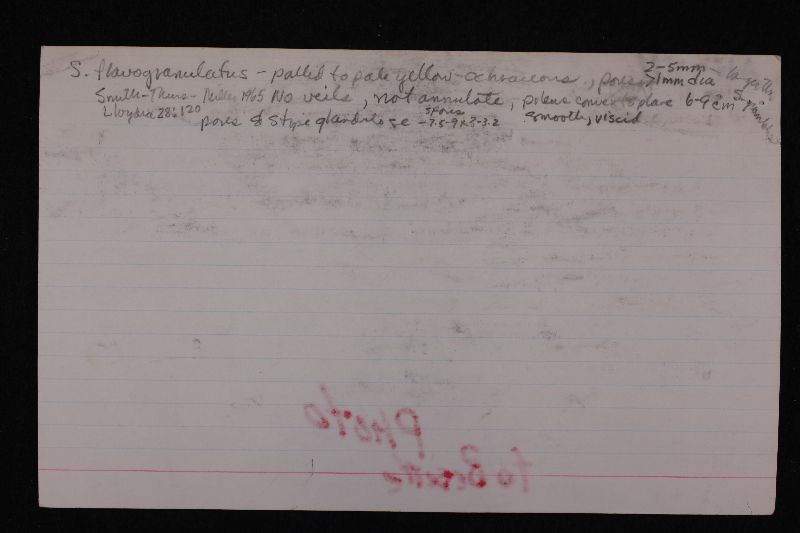 2-5mm
S. flavogranulatus - pallid to pale yellow-ochraceous, pores >1mm dia
Smith-Thiers-Miller 1965 No veils, not annulate, pileus convex to plane 6-9 cm
Lloydia 28:120 pores & stipe glandulose spores -7.5-9 x 2.8-3.2 smooth, viscid
Photo
to